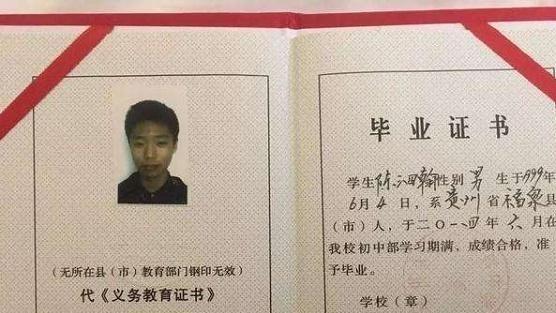 (无所在县(市)教育部门钢印无效)
代《义务教育证书》
毕业证书
学生陈 翰性别 男 生于1999年
6月4日,系贵州省福泉县
(市)人,于二〇一四年六月在
我校初中部学习期满、成绩合格,准
予毕业。
学校(章)